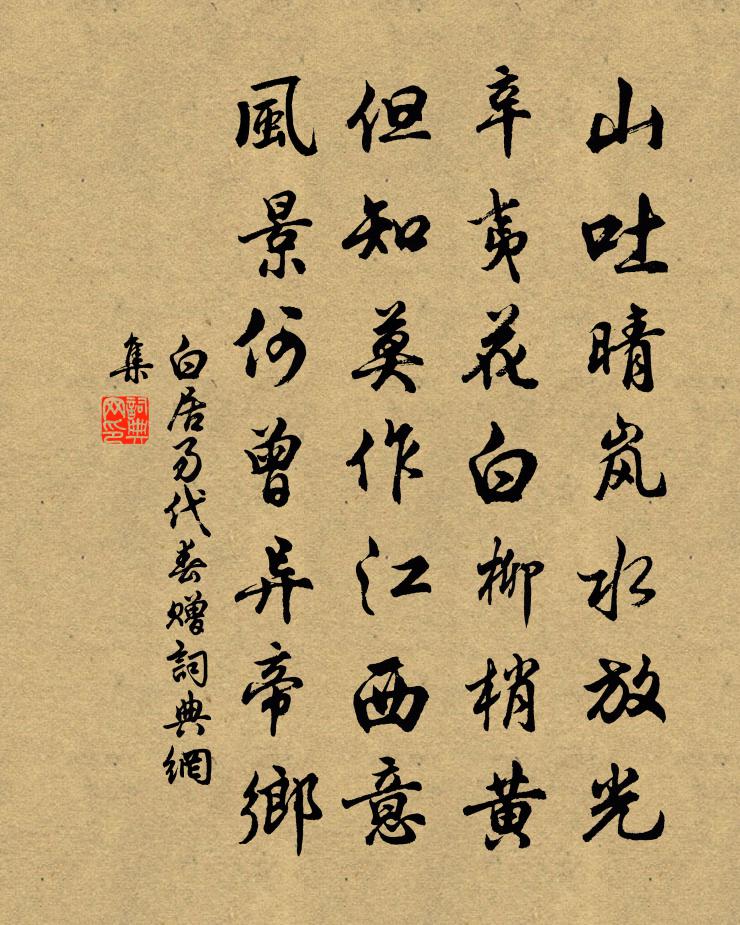 山吐晴岚水放光
辛夷花白柳梢黄
但知莫作江西意
風景何曾异帝鄉
白居易代春赠詞典網
集
詞典
网印